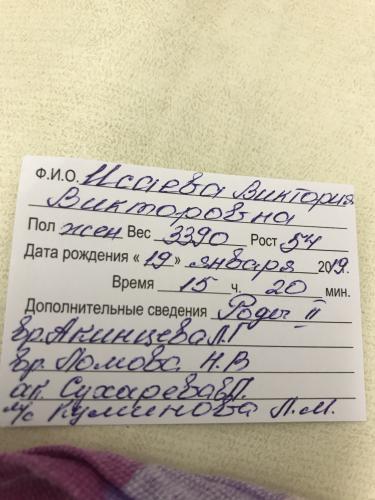 Ф.И.О. Исаева Виктория
Викторовна
Пол жен Вес 3390 Рост 54
Дата рождения « 19 » января 2019.
Время 15 ч. 20 мин.
Дополнительные сведения Роды II
вр. Акинцева Л.Г
вр. Ломова Н.В
ак. Сухарева П.
м/с Куминова Л.М.